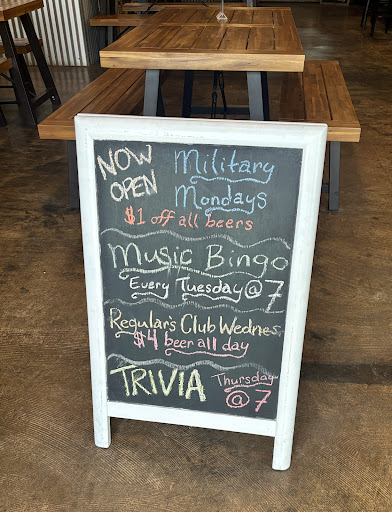 NOW OPEN
Military Mondays
$1 off all beers
Music Bingo
Every Tuesday @ 7
Regular's Club Wednes
$4 beer all day
TRIVIA Thursday @ 7